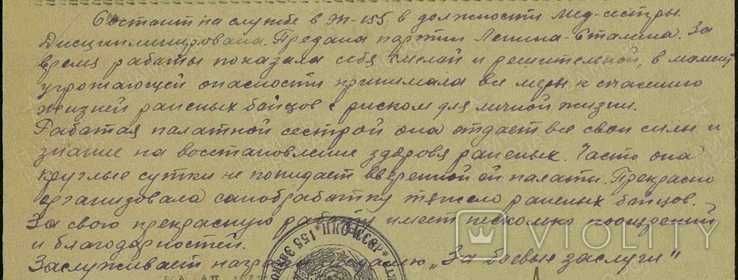 Состоит на службе в ЭП-155 в должности мед-сестры.
Дисциплинирована. Предана партии Ленина-Сталина. За
время работы показала себя смелой и решительной, в момент
угрожающей опасности принимала все меры к спасению
жизней раненых бойцов с риском для личной жизни.
Работая палатной сестрой она отдает все свои силы и
знание на восстановление здоровя раненых. Часто она
круглые сутки не покидает вверенной ей палаты. Прекрасно
организовала санобработку тяжело раненых бойцов.
За свою прекрасную работу имеет несколько поощрений
и благодарностей.
Заслуживает медалью „За боевые заслуги"
VIOLITY